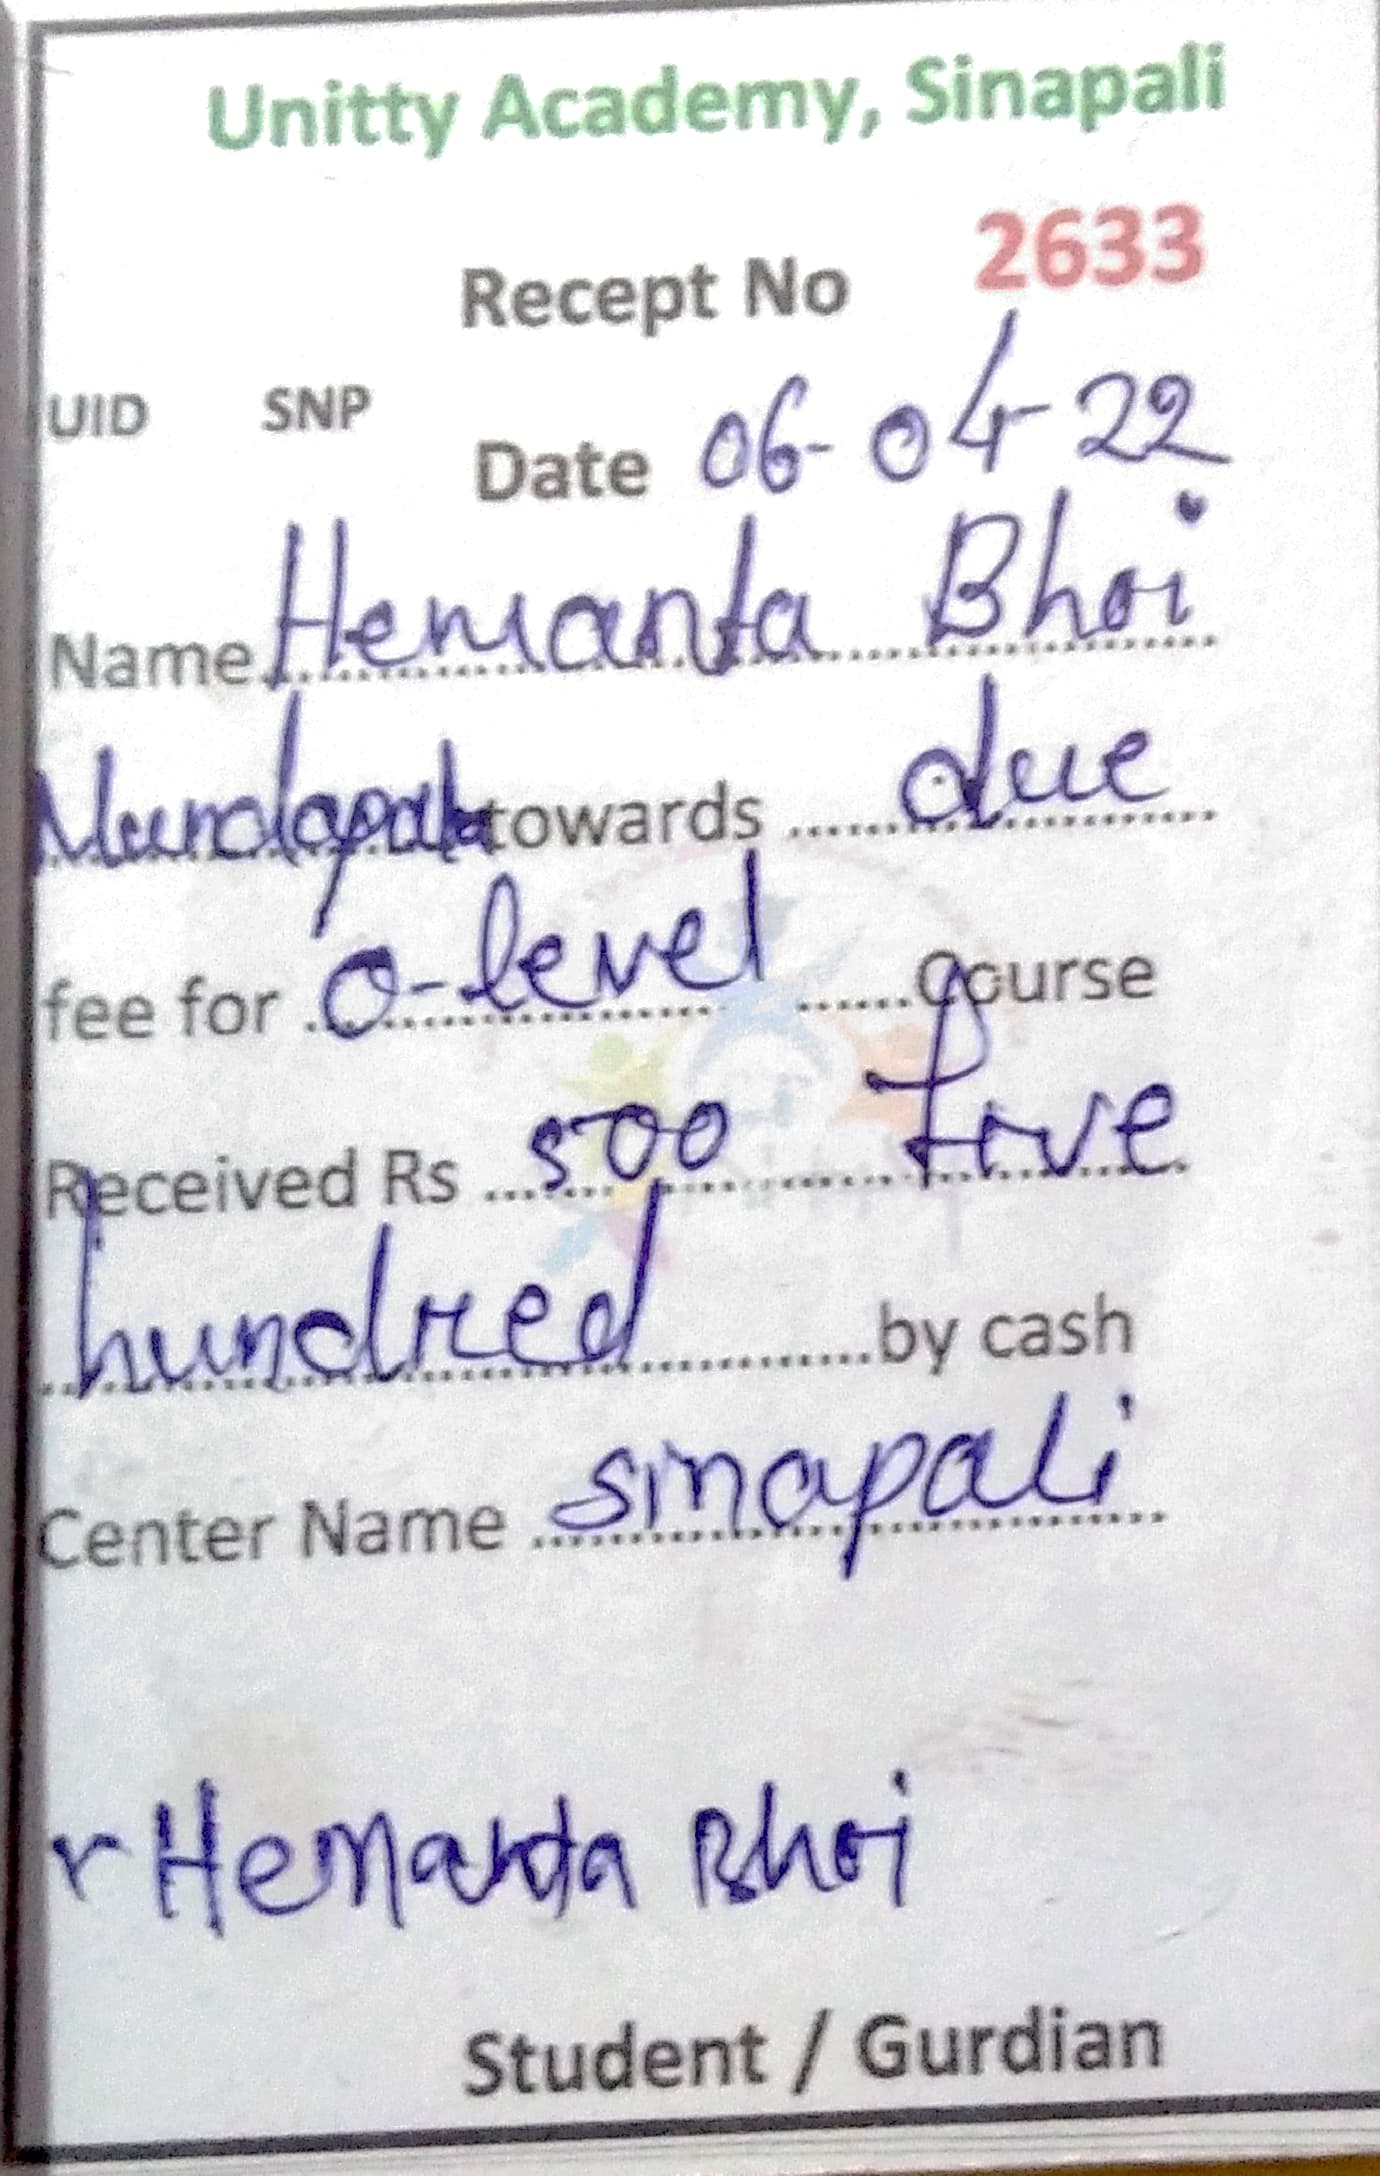 Unitty Academy, Sinapali
Recept No 2633
UID SNP
Date 06-04-22
Name Hemanta Bhoi
Mundapala towards due
fee for O-level Course
Received Rs 500 Five
hundred by cash
Center Name sinapali
Hemanta Bhoi
Student / Gurdian